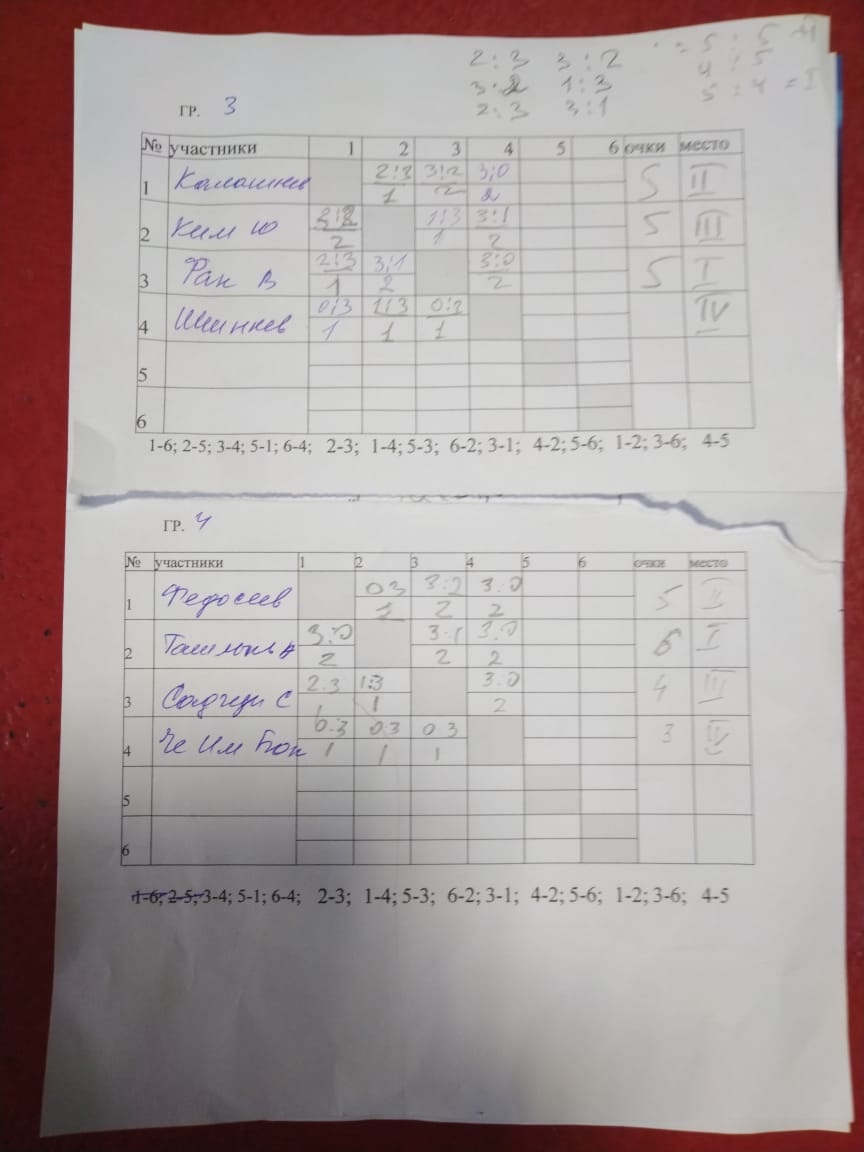 2:3 3:2 = 5 : 5
3:2 1:3 4 : 5
2:3 3:1 5 : 4 = I
ГР. 3
№ участники 1 2 3 4 5 6 очки место
1 2:3 3:2 3:0 5 II
1 2 2
2 Ким Ю 3:2 1:3 3:1 5 III
2 1 2
3 Ран В 2:3 3:1 3:0 5 I
1 2 2
4 0:3 1:3 IV
1 1 1
5
6
1-6; 2-5; 3-4; 5-1; 6-4; 2-3; 1-4; 5-3; 6-2; 3-1; 4-2; 5-6; 1-2; 3-6; 4-5
ГР. 4
№ участники 1 2 3 4 5 6 очки место
1 Федосеев 0 3 3:2 3:0 5 II
1 2 2
2 3:0 3:1 3:0 6 I
2 2 2
3 2:3 1:3 3:0 4 III
1 1 2
4 Че Им Бок 0:3 0:3 0 3 3 IV
1 1 1
5
6
1-6; 2-5; 3-4; 5-1; 6-4; 2-3; 1-4; 5-3; 6-2; 3-1; 4-2; 5-6; 1-2; 3-6; 4-5